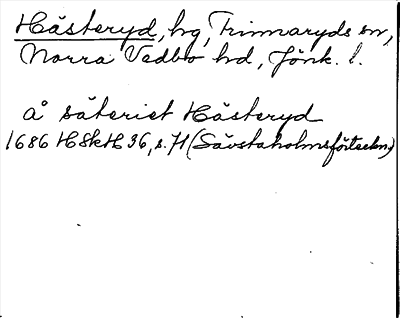 Hästeryd, hg, Frinnaryds sn,
Norra Vedbo hd, Jönk. l.
å säteriet Hästeryd
1686 HSkH 36, s. 71 (Sävstaholmsförteckn.)